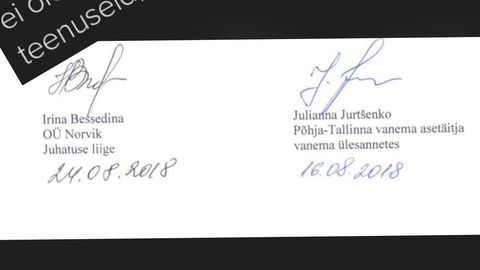 ei
teenuseid
Irina Bessedina
OÜ Norvik
Juhatuse liige
24.08.2018
Julianna Jurtšenko
Põhja-Tallinna vanema asetäitja
vanema ülesannetes
16.08.2018